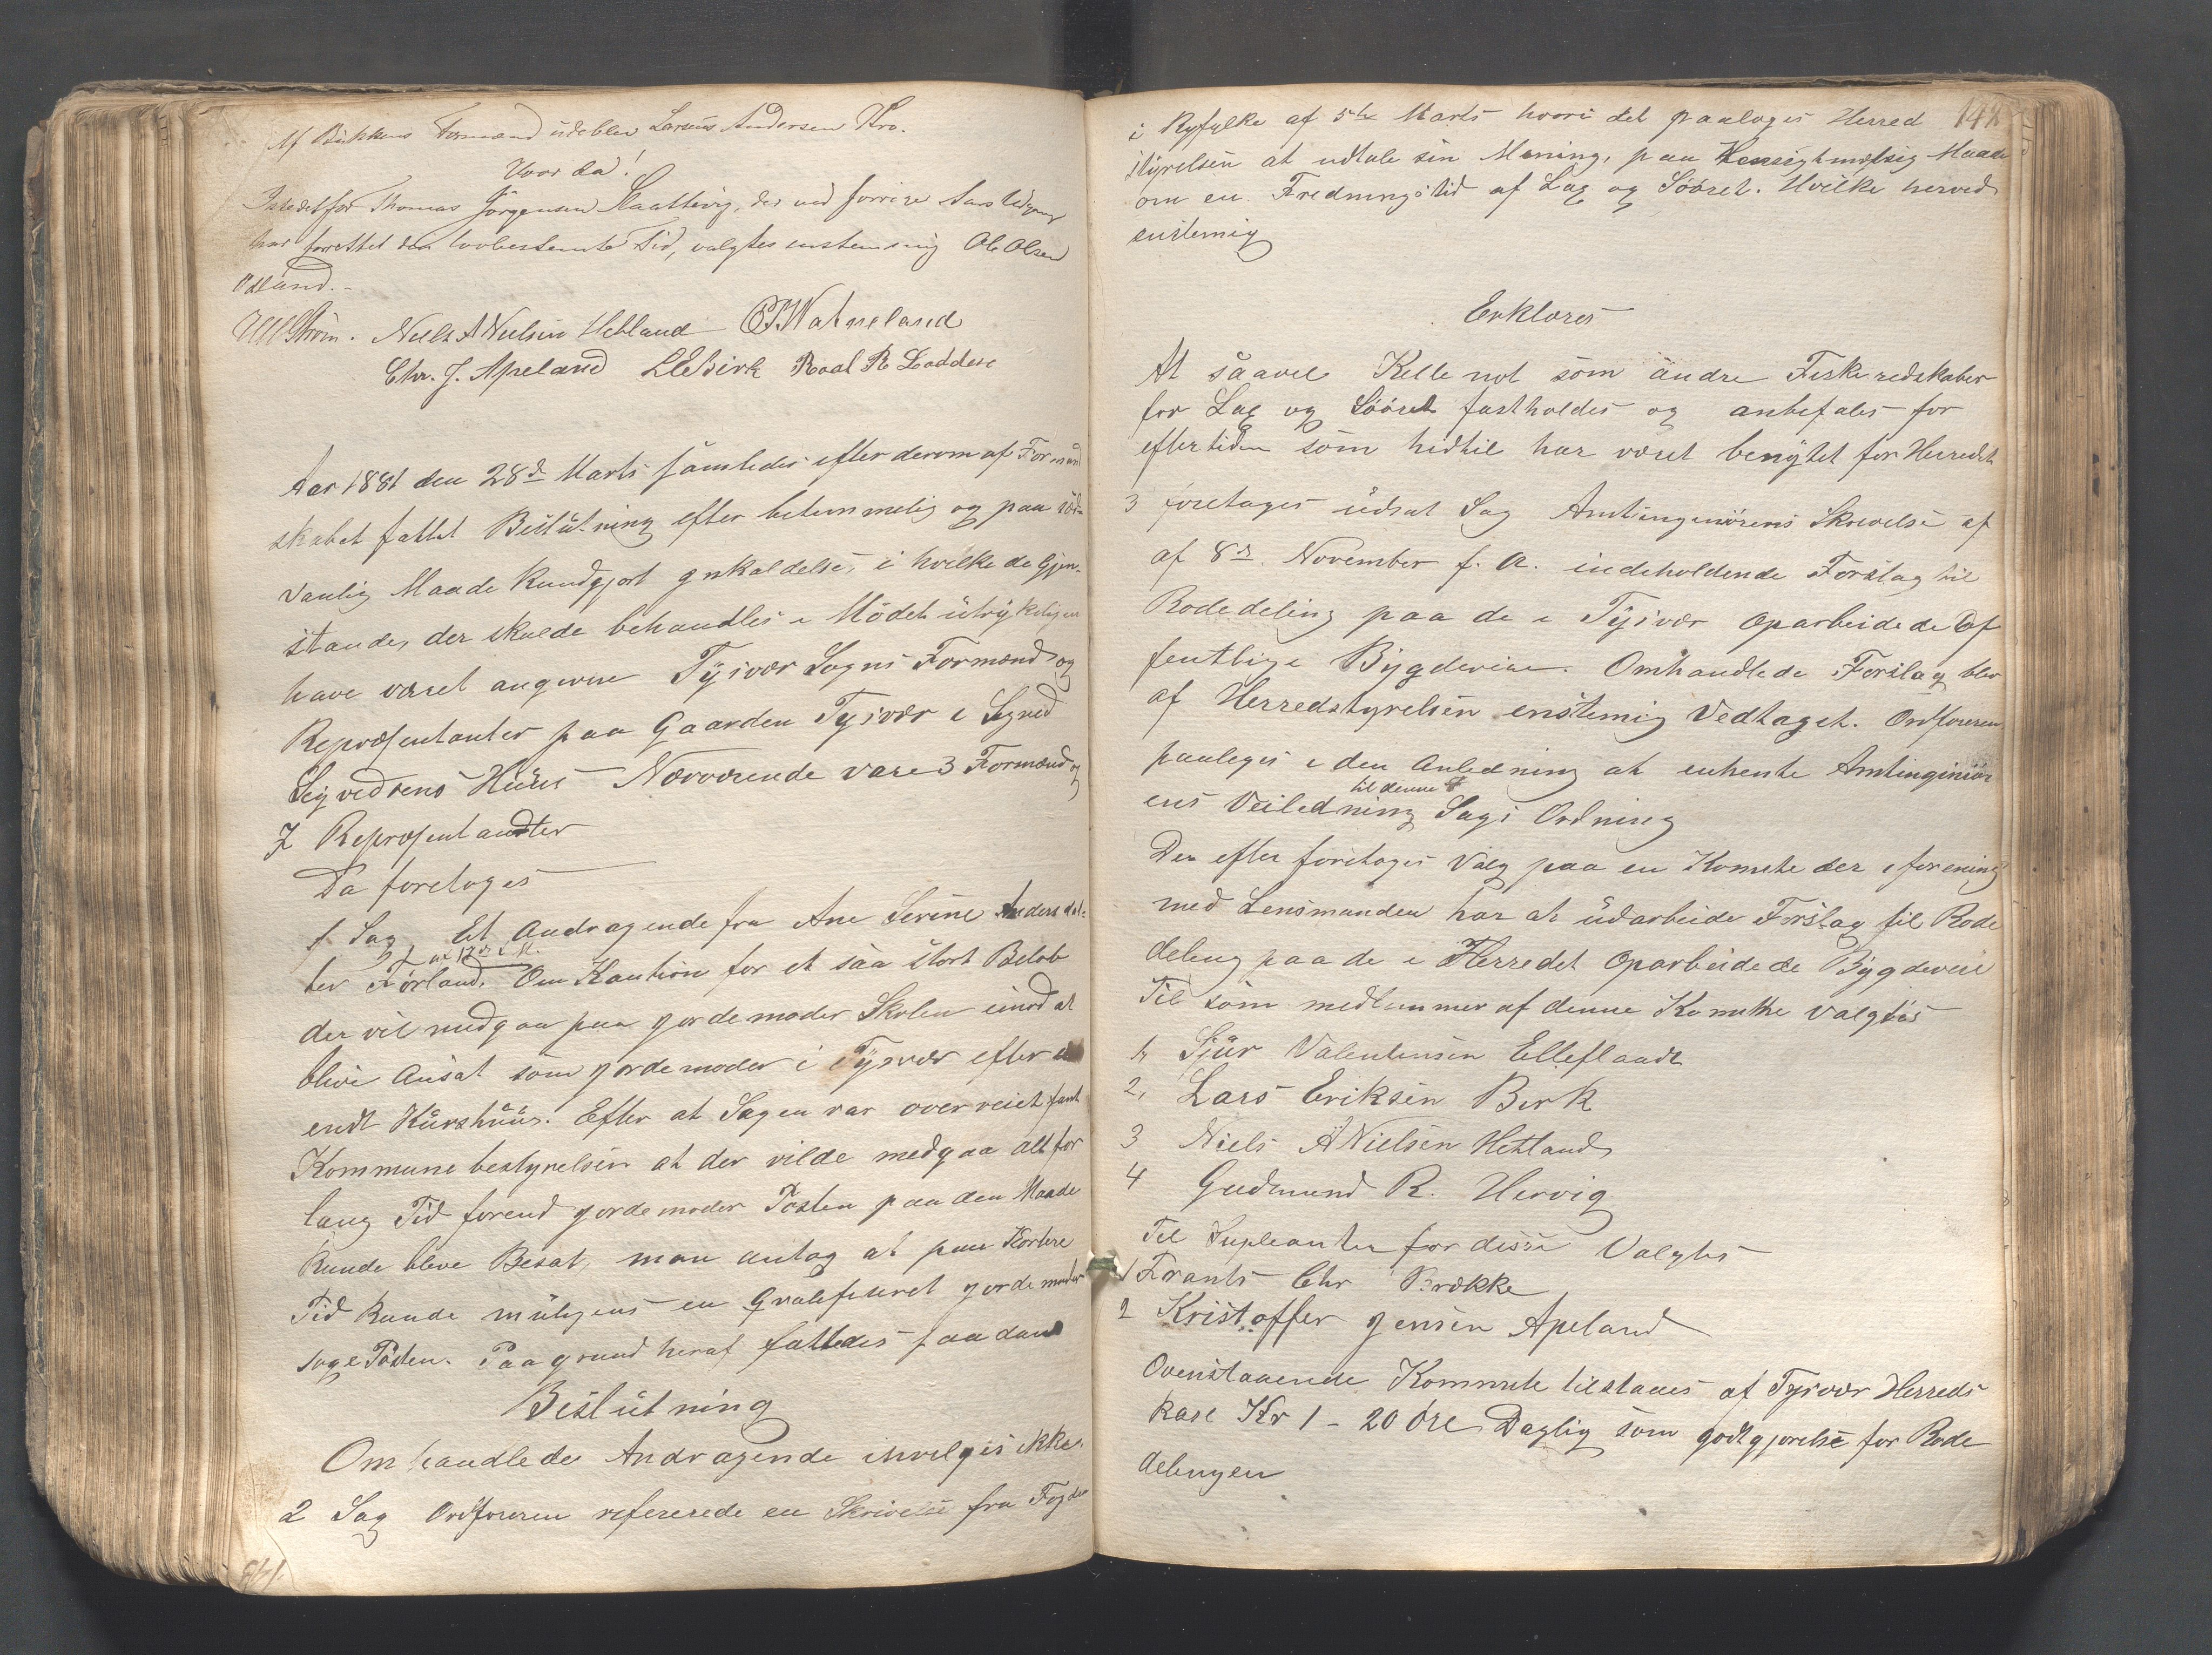 Af Bukkens Formænd udeblev Larsius Andersen Kro.
Hvor da!
Istedetfor Thomas Jörgensen Slaattevig, der ved forrige Aars Udgang
har forrettet den lovbestemte Tid, valgtes enstemmig Ole Olsen
Odland.
Niels A Nielsen Hetland Watneland
Chr. J. Apeland L E Birk Roal R. Loddese
Aar 1881 den 28de Marts samledes efter derom af Formand
skabet fattet Beslutning efter betimmelig og paa sæd
vanlig Maade Kundgjort gnkaldelse, i hvilke de Gjen-
stande, der skulde behandles i Mödet utrykkeligen
have været angivne Tysvær Sogns Formænd og
Repræsentanter paa Gaarden Tysvær i Sigved
Sigvedsens Huus Nærværende vare 3 Formænd og
7 Repræsentandter
Da foretoges
1 Sag, Et Andragende fra Ane Serine Andersdat-
af 17de d. M.
ter Førland, Om Kaution for et saa stort Belöb
der vil medgaa paa gordemoder Skolen imod at
blive Ansat som gordemoder i Tysvær efter
endt Kurshuus. Efter at Sagen var overveiet fant
Kommune bestyrelsen at der vilde medgaa alt for
lang Tid forend gordemoder Posten paa den Maade
kunde blive Besat, man antog at paa Kortere
Tid kunde muligens en Qvalefiseret gordemoder
søge Posten. Paa grund heraf fattedes saadan
Beslutning
Omhandlede Andragende invilges ikke.
2 Sag Ordföreren refererede en Skrivelse fra Fogden
148
i Ryfylke af 5te Marts hvori det paaloges Herred
styrelsen at udtale sin Mening, paa Hensigtmæssig Maade
om en Fredningstid af Lax og Sööret. Hvilke herved
enstemig
Erklæres
At saavel Kellenot som andre Fiskeredskaber
for Lax og Sööret fastholdes og anbefales for
eftertiden som hidtil har været benyttet for Herredet
3 foretages udsat Sag Amtingeniörens Skrivelse af
af 8de November f. A. indeholdende Forslag til
Rodedeling paa de i Tysvær Oparbeidede Of
fentlige Bygdeveie. Omhandlede Forslag blev
af Herredstyrelsen enstemig Vedtaget. Ordföreren
paaleges i den Anledning at enhente Amtinginiör
til denne
ens Veiledning Sags Ordning
Der efter foretages Valg paa en Komete der i forening
med Lensmanden har at udarbeide Forslag til Rode
deling paa de i Herredet Oparbeidede Bygdeveie
Til som medlemmer af denne Komitte valgtes
1, Sjur Valentinsen Elleflaadt
2, Lars Eriksen Birk
3 Niels A Nielsen Hetland
4 Gudmund R. Hervig
Til Supleanter for disse Valgtes
1 Frants Chr Brække
2 Kristoffer Jensen Apeland
Ovenstaaende Kommite tilstaaes af Tysvær Herreds
kase Kr 1 - 20 öre Daglig som godtgjorelse for Rode
delingen